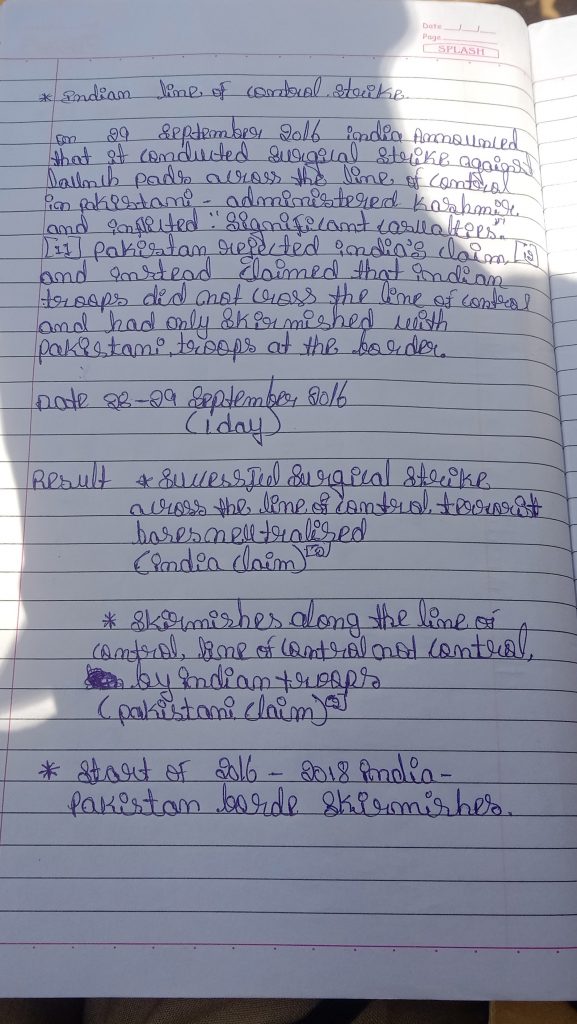 Date __/__/__
Page
SPLASH
* Indian line of control strike.
on 29 September 2016 india Announced
that it conducted surgical strike against
launch pads across the line of control
in pakistani - administered Kashmir,
and inflicted "significant casualties."
[11] pakistan rejected india's claim, [13]
and instead claimed that indian
troops did not cross the line of control
and had only skirmished with
pakistani, troops at the border.
Date 28-29 September 2016
(1 day)
Result * Successful Surgical Strike
across the line of control, terrorist
bases neutralised
(india claim)
* Skirmishes along the line of
control, line of control not control,
by indian troops
(pakistani claim)
* Start of 2016 - 2018 india -
pakistan borde skirmishes.